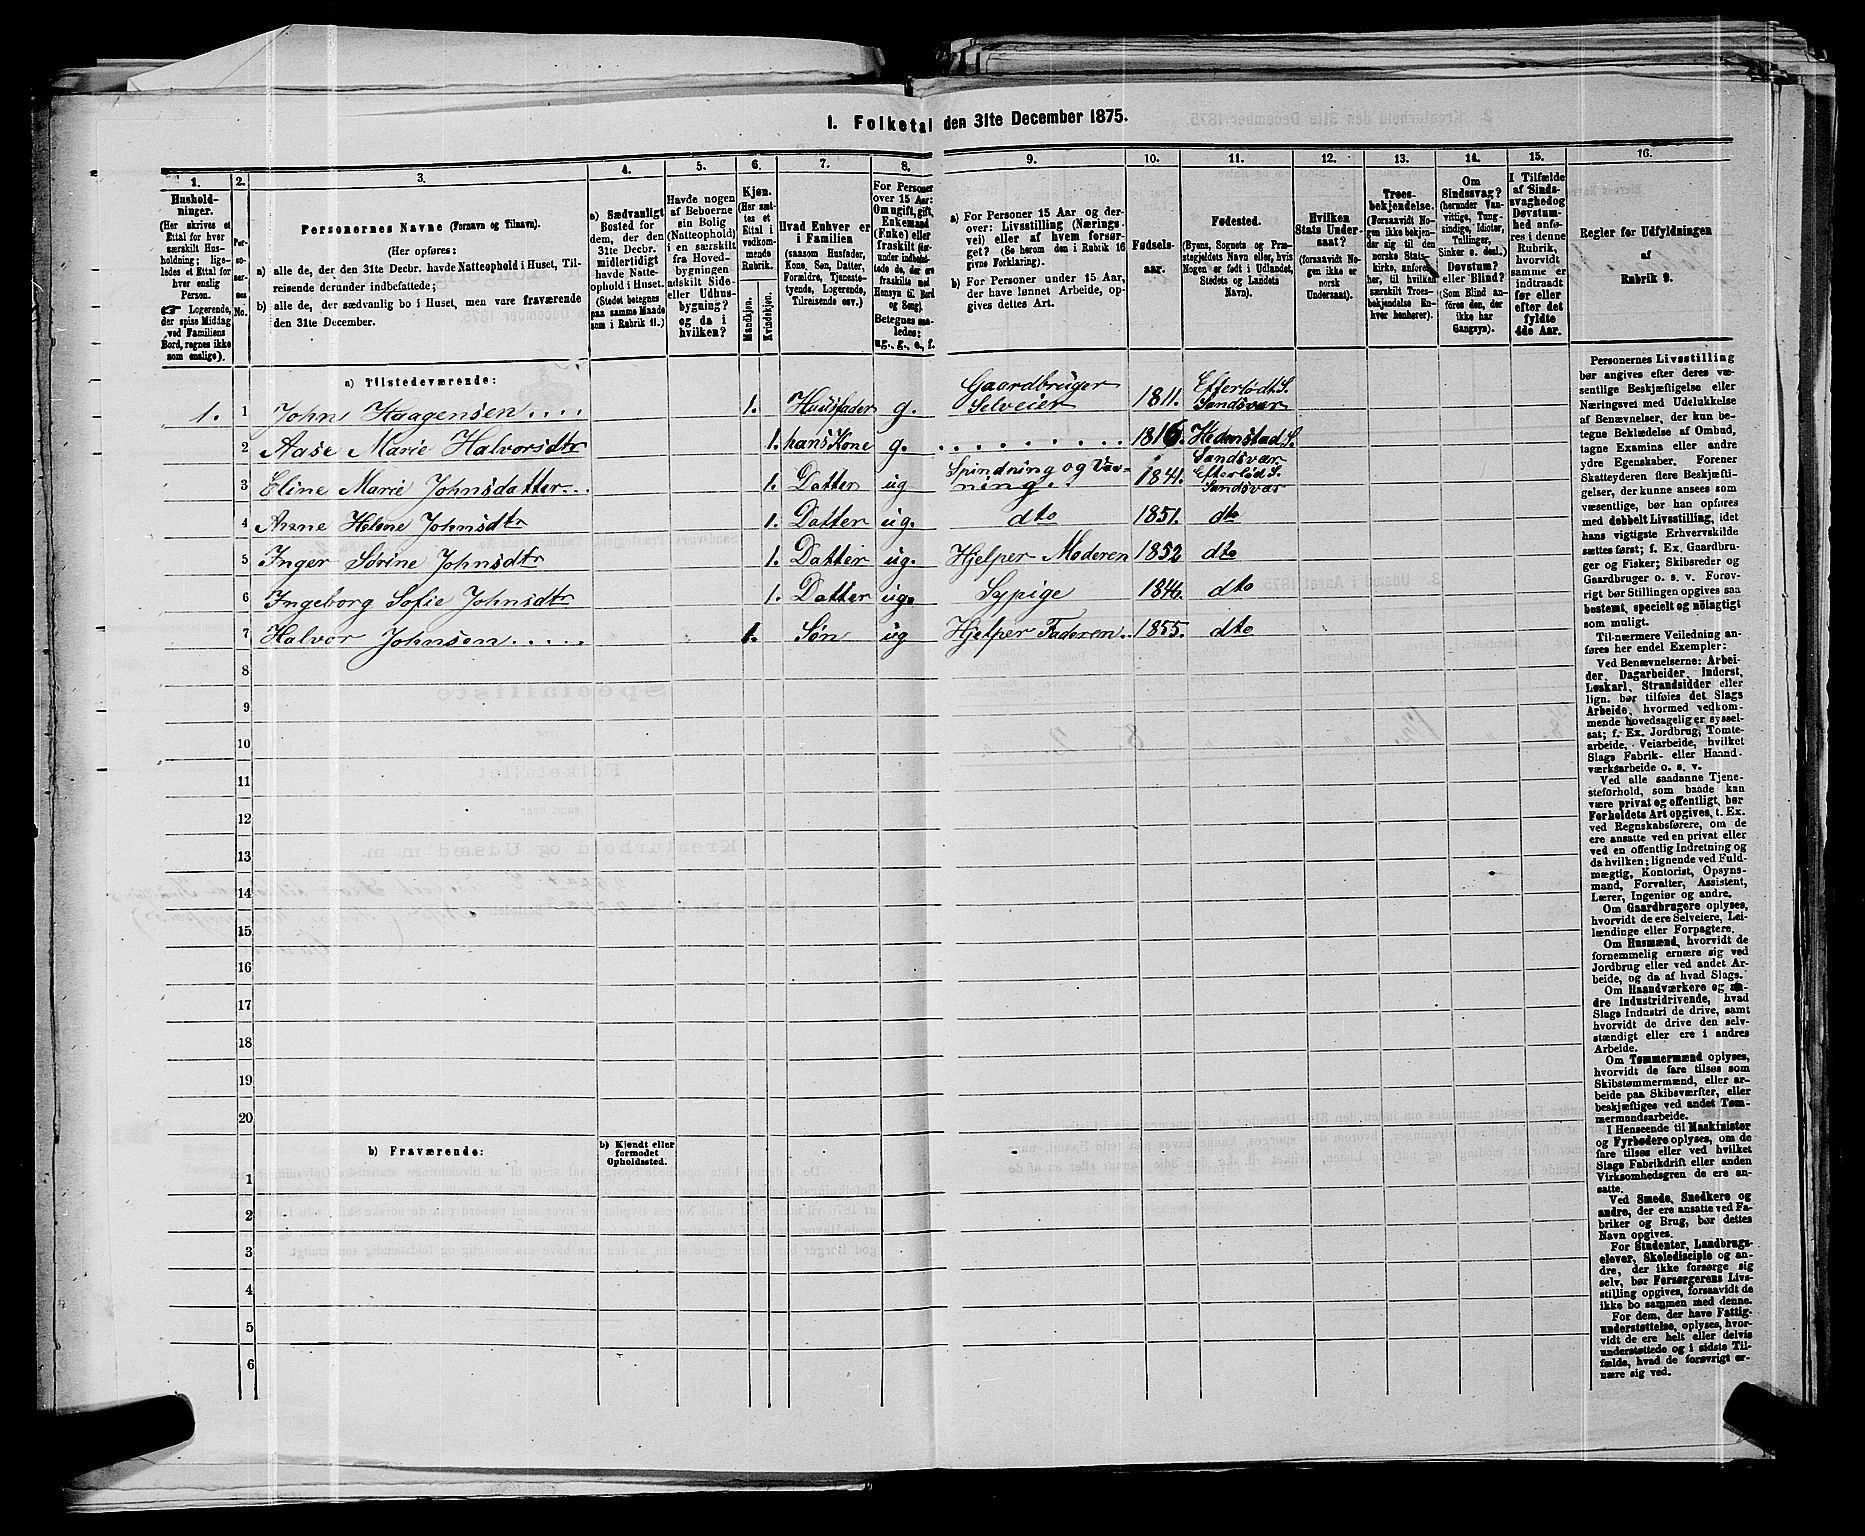 1. Folketal den 31te December 1875.
1. 2. 3. 4. 5. 6. 7. 8. 9. 10. 11. 12. 13. 14. 15. 16.
Hushold-
ninger.
(Her skrives et
Ettal for hver
særskilt Hus-
holdning; lige-
ledes et Ettal for
hver enslig
Person.
☛ Logerende,
der spise Middag
ved Familiens
Bord, regnes ikke
som enslige).
Per-
so-
ner-
nes
No.
Personernes Navne (Fornavn og Tilnavn).
(Her opføres:
a) alle de, der den 31te Decbr. havde Natteophold i Huset, Til-
reisende derunder indbefattede;
b) alle de, der sædvanlig bo i Huset, men vare fraværende
den 31te December.
a) Sædvanligt
Bosted for
dem, der den
31te Decbr.
midlertidigt
havde Natte-
ophold i Huset.
(Stedet betegnes
paa samme Maade
som i Rubrik 11.)
Havde nogen
af Beboerne
sin Bolig
(Natteophold)
i en særskilt
fra Hoved-
bygningen
adskilt Side-
eller Udhus-
bygning?
og da i
hvilken?
Kjøn.
(Her sæt-
tes et
Ettal i
vedkom-
mende
Rubrik.
Mandkjøn.
Kvindekjøn.
Hvad Enhver er
i Familien
(saasom Husfader,
Kone, Søn, Datter,
Forældre, Tjeneste-
tyende, Logerende,
Tilreisende osv.)
For Personer
over 15 Aar:
Om ugift, gift,
Enkemand
(Enke) eller
fraskilt
Hensyn til Bord
og Seng).
Betegnes saa-
ledes:
ug., g., e., f.
a) For Personer 15 Aar og der-
over: Livsstilling (Nærings-
vei) eller af hvem forsør-
get? (Se herom den i Rubrik 16
givne Forklaring).
b) For Personer under 15 Aar,
der have lønnet Arbeide, op-
gives dettes Art.
Fødsels-
aar.
Fødested.
(Byens, Sognets og Præ-
stegjeldets Navn eller, hvis
Nogen er født i Udlandet,
Stedets og Landets
Navn).
Hvilken
Stats Under-
saat?
(forsaavidt No-
gen ikke er
norsk
Undersaat).
Troes-
bekjendelse.
(Forsaavidt No-
gen ikke bekjen-
der sig til den
norske Stats-
kirke, anføres
her, til hvilken
særskilt Troes-
bekjendelse En-
hver henhører).
Om
Sindssvag?
(herunder Van-
vittige, Tung-
sindige, Idioter,
Tullinger,
Sinker o. desl.).
Døvstum?
eller Blind?
(Som Blind an-
føres den, der
ikke har
Gangsyn).
I Tilfælde
af Sinds-
svaghed og
Døvstum-
hed anfø-
res i denne
Rubrik,
hvorvidt
samme er
indtraadt
før eller
efter det
fyldte
4de Aar.
Regler for Udfyldningen
af
Rubrik 9.
a) Tilstedeværende:
1. 1 John Haagensen .... 1. Huusfader g. Gaardbruger Selveier 1811. Efterlødt S. Sandsvær
2 Aase Marie Halvorsdtr 1. hans Kone g. . . . . . . . . . 1816. Hedenstad S. Sandsvær
3 Eline Marie Johnsdatter... 1. Datter ug Spindning og Væv-ning. . 1841. Efterlød S. Sandsvær
4 Anne Helene Johnsdtr 1. Datter ug. dto 1851. dto
5 Inger Sørine Johnsdtr 1. Datter ug. Hjelper Moderen 1852 dto
6 Ingeborg Sofie Johnsdtr 1. Datter ug. Sypige 1846. dto
7 Halvor Johnsen ..... 1. Søn ug Hjelper Faderen. 1855. dto
8
9
10
11
12
13
14
15
16
17
18
19
20
b) Fraværende:
b) Kjendt eller
formodet
Opholdssted.
1
2
3
4
5
6
Personernes Livsstilling
bør angives efter deres væ-
sentlige Beskjæftigelse eller
Næringsvei med Udelukkelse
af Benævnelser, der kun be-
tegne Beklædelse af Ombud,
tagne Examina eller andre
ydre Egenskaber. Forener
Skatteyderen flere Beskjæfti-
gelser, der kunne ansees som
væsentlige, bør han opføres
med dobbelt Livsstilling, idet
hans vigtigste Erhvervskilde
sættes først; f. Ex. Gaardbru-
ger og Fisker; Skibsreder og
Gaardbruger o. s. v. Forøv-
rigt bør Stillingen opgives saa
bestemt, specielt og nöiagtigt
som muligt.
Til nærmere Veiledning an-
føres her endel Exempler:
Ved Benævnelserne: Arbei-
der, Dagarbeider, Inderst,
Løskarl, Strandsidder eller
lign. bør tilføies det Slags
Arbeide, hvormed vedkom-
mende hovedsagelig er syssel-
sat; f. Ex. Jordbrug, Tomte-
arbeide, Veiarbeide, hvilket
Slags Fabrik- eller Haand-
værksarbeide o. s. v.
Ved alle saadanne Tjene-
steforhold, som baade kan
være privat og offentligt, bør
Forholdets Art opgives, t. Ex.
ved Regnskabsførere, om de
ere ansatte ved en privat eller
ved en offentlig Indretning og
da hvilken; lignende ved Fuld-
mægtig, Kontorist, Opsyns-
mand, Forvalter, Assistent,
Lærer, Ingeniør og andre.
Om Gaardbrugere oplyses,
hvorvidt de ere Selveiere, Lei-
lændinge eller Forpagtere.
Om Husmænd, hvorvidt de
fornemmelig ernære sig ved
Jordbrug eller ved andet Ar-
beide, og da af hvad Slags.
Om Haandværkere og an-
dre Industridrivende, hvad
Slags Industri de drive, samt
hvorvidt de drive den selv-
stændigt eller ere i andres
Arbeide.
Om Tømmermænd oplyses,
hvorvidt de fare tilsøs som
Skibstømmermænd, eller ar-
beide paa Skibsværfter, eller
beskjæftiges ved andet Tøm-
mermandsarbeide.
I Henseende til Maskinister
og Fyrbødere oplyses, om de
fare tilsøs eller ved hvilket
Slags Fabrikdrift eller anden
Virksomhedsgren de ere an-
satte.
Ved Smede, Snedkere og
andre, der ere ansatte ved Fa-
briker og Brug, bør dettes
Navn opgives.
For Studenter, Landbrugs-
elever, Skoledisciple og an-
dre, der ikke forsørge sig
selv, bør Forsørgerens Livs-
stilling opgives, forsaavidt de
ikke bo sammen med denne.
For dem, der have Fattig-
understøttelse, oplyses, hvor-
vidt de ere helt eller delvis
understøttede og i sidste Til-
fælde, hvad de forøvrigt er-
nære sig ved.